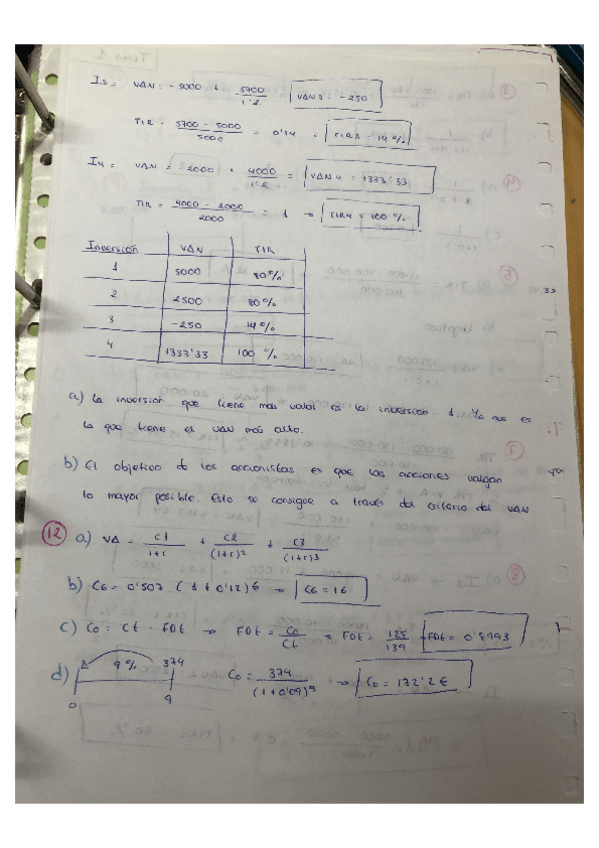 I3 = VAN = -5000 + 5700/1'2 = VAN3 = -250
TIR = 5700 - 5000/5000 = 0'14 = TIR3 = 14%
I4 = VAN = -2000 + 4000/1'2 = VAN4 = 1333'33
TIR = 4000 - 2000/2000 = 1 → TIR4 = 100%
Inversión VAN TIR
1 5000 80%
2 2500 80%
3 -250 14%
4 1333'33 100%
a) La inversión que tiene más valor es la inversión 1. Ya que es
la que tiene el VAN más alto.
b) El objetivo de los accionistas es que las acciones valgan
lo mayor posible. Esto se consigue a través del criterio del VAN
12 a) VA = C1/1+r + C2/(1+r)2 + C3/(1+r)3
b) C6 = 0'507 (1+0'12)6 → C6 = 16
c) C0 = Ct · FDt → FDt = C0/Ct → FDt = 125/139 FDt = 0'8993
d) A 9% 374 C0 = 374/(1+0'09)9 → C0 = 172'2€
0 9